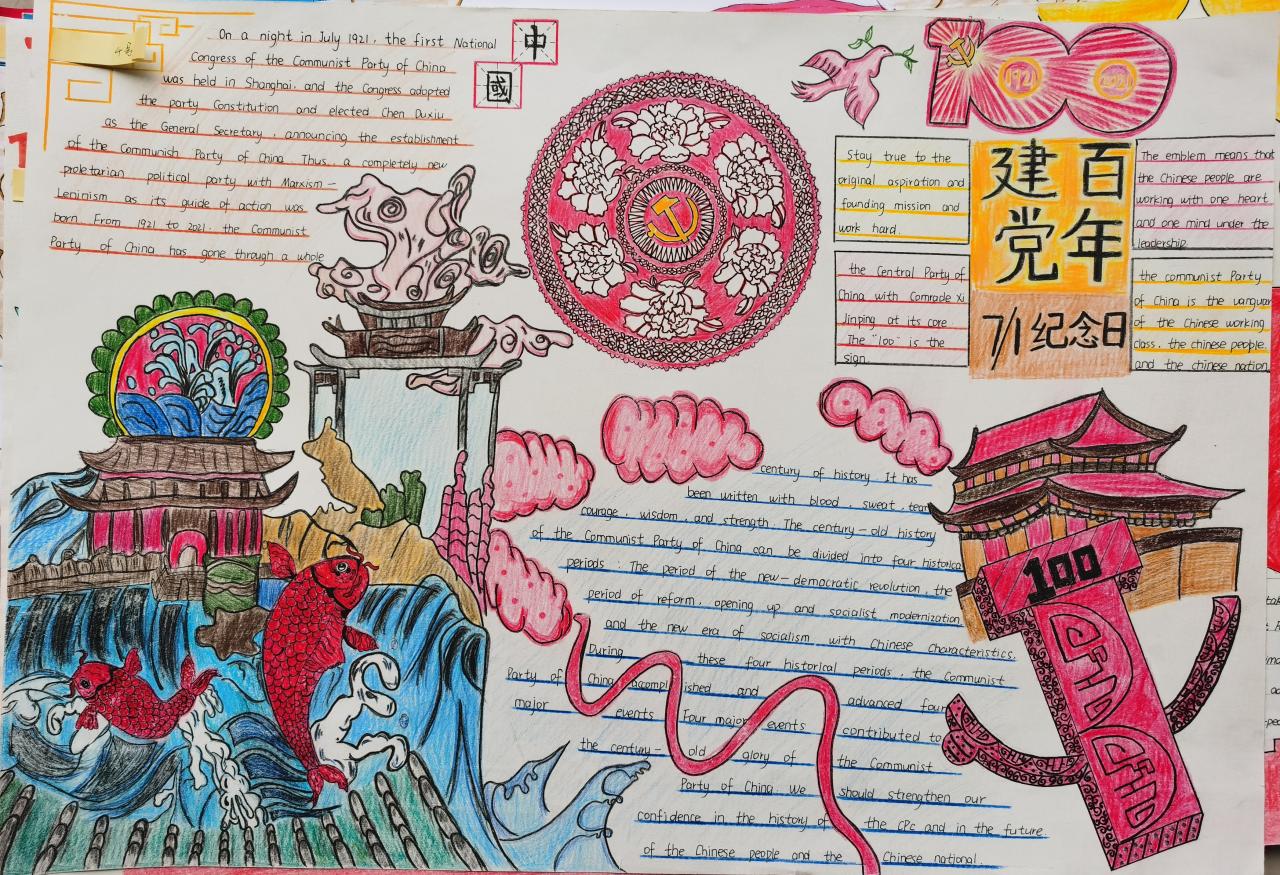 On a night in July 1921, the first National
Congress of the Communist Party of China
was held in Shanghai, and the Congress adopted
the party Constitution and elected Chen Duxiu
as the General Secretary, announcing the establishment
of the Communish Party of China. Thus, a completely new
proletarian political party with Marxism-
Leninism as its guide of action was
born From 1921 to 2021, the Communist
Party of China has gone through a whole
中
國
100
1921
2021
Stay true to the
original aspiration and
founding mission and
work hard.
the Central Party of
China with Comrade Xi
Jinping at its core
The "100" is the
sign.
建百
党年
7/1纪念日
The emblem means that
the Chinese people are
working with one heart
and one mind under the
leadership
the communist Party
of China is the vanguar
of the Chinese working
class, the chinese people.
and the chinese nation
century of history It has
been written with blood, sweat, tear
courage, wisdom, and strength. The century-old history
of the Communist Party of China can be divided into four historica
periods: The period of the new-democratic revolution, the
period of reform, opening up and socialist modernization
and the new era of socialism with Chinese characteristics.
During these four historical periods, the Communist
Party of China accomplished and advanced four
major events Four major events contributed to
the century-old glory of the Communist
Party of China. We should strengthen our
confidence in the history of the CPC and in the future
of the Chinese people and the Chinese national.
100